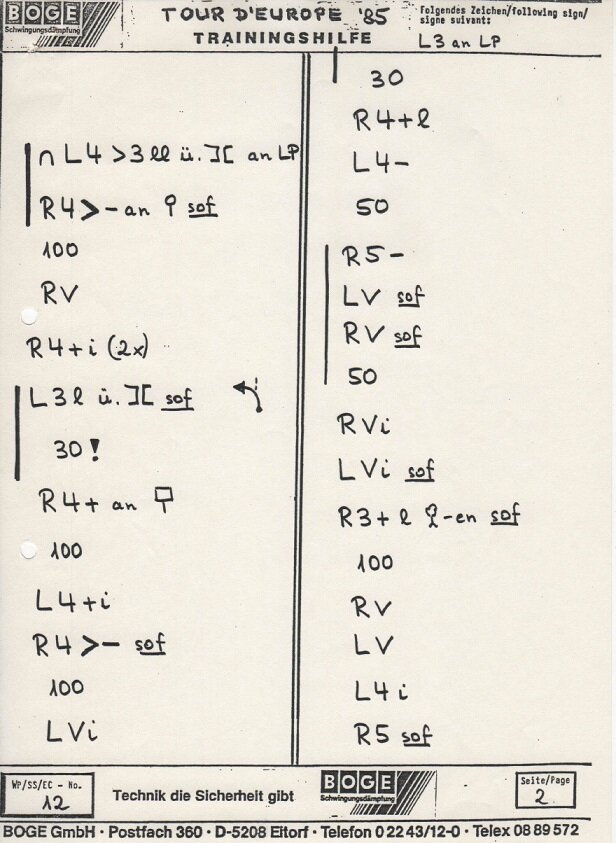 BOGE
Schwingungsdämpfung
TOUR D'EUROPE '85
TRAININGSHILFE
Folgendes Zeichen/following sign/
signe suivant:
L3 an LP
∩ L4 >3 ll ü. ][ an LP
R4 > - an sof
100
RV
R4+i (2x)
L3 l ü. ][ sof
30!
R4+ an
100
L4+i
R4 >- sof
100
LVi
30
R4+l
L4-
50
R5-
LV sof
RV sof
50
RVi
LVi sof
R3+ l -en sof
100
RV
LV
L4i
R5 sof
WP/SS/EC - No.
12
Technik die Sicherheit gibt
BOGE
Schwingungsdämpfung
Seite/Page
2
BOGE GmbH · Postfach 360 · D-5208 Eitorf · Telefon 0 22 43/12-0 · Telex 08 89 572